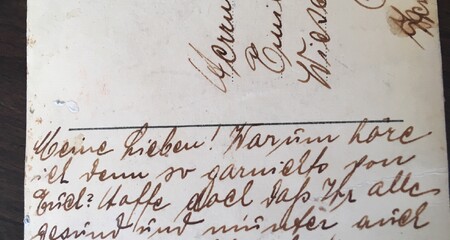 Herrn
Emil
Wiesb
Meine Lieben! Warum höre
ich denn so garnichts von
Euch? Hoffe doch daß Ihr alle
gesund und munter auch